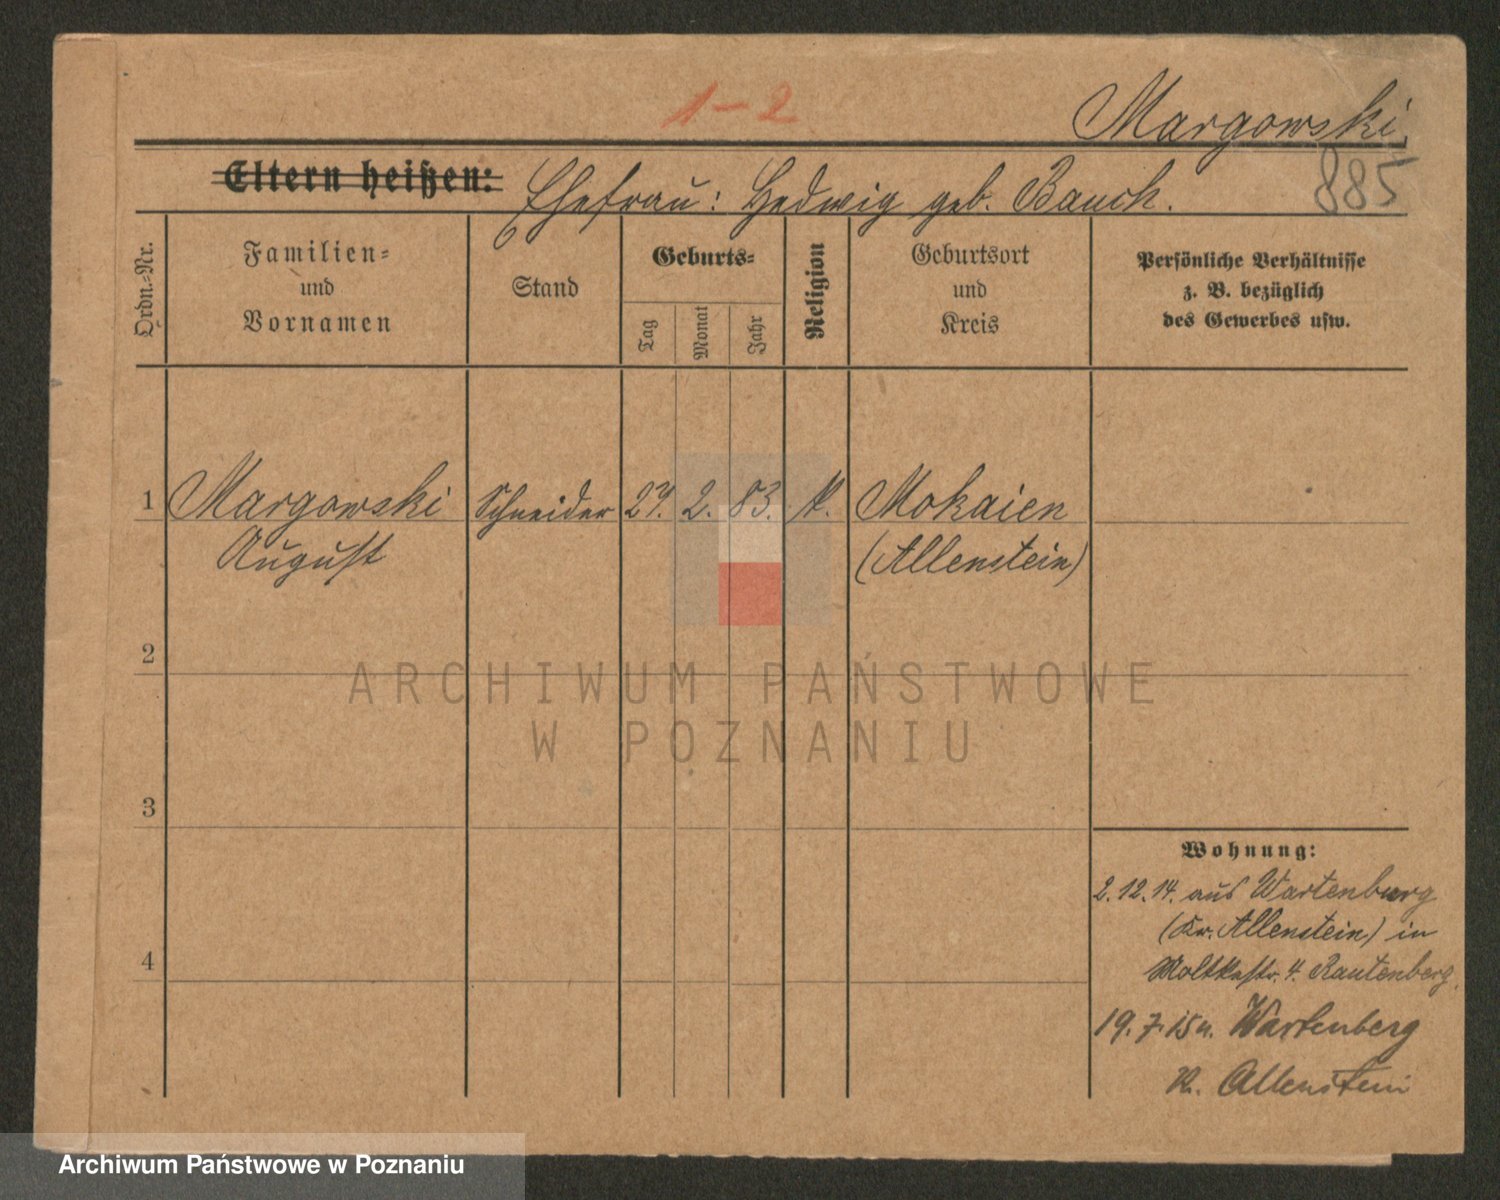 1-2
Margowski.
Eltern heißen: Ehefrau: Hedwig geb. Bauch.
885
Ordn.-Nr.
Familien-
und
Vornamen
Stand
Geburts-
Tag
Monat
Jahr
Religion
Geburtsort
und
Kreis
Persönliche Verhältnisse
z. B. bezüglich
des Gewerbes usw.
1 Margowski Schneider 27. 2. 83. k. Mokaien
August (Allenstein)
2
ARCHIWUM PAŃSTWOWE
W POZNANIU
3
Wohnung:
2.12.14. aus Wartenburg
(Kr. Allenstein) in
Moltkestr. 4. Rautenberg.
4
19.7.15 n. Wartenberg
K. Allenstein
Archiwum Państwowe w Poznaniu